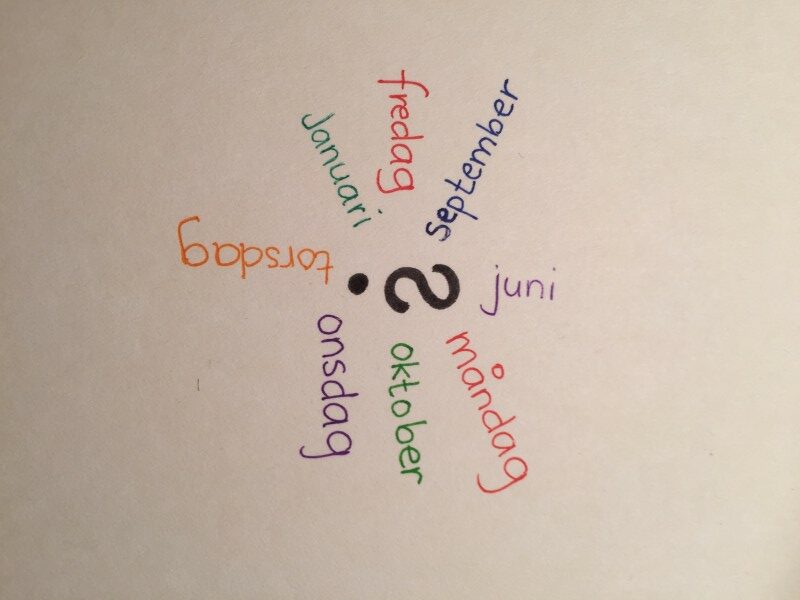 juni
måndag
oktober
onsdag
torsdag
januari
fredag
september
?